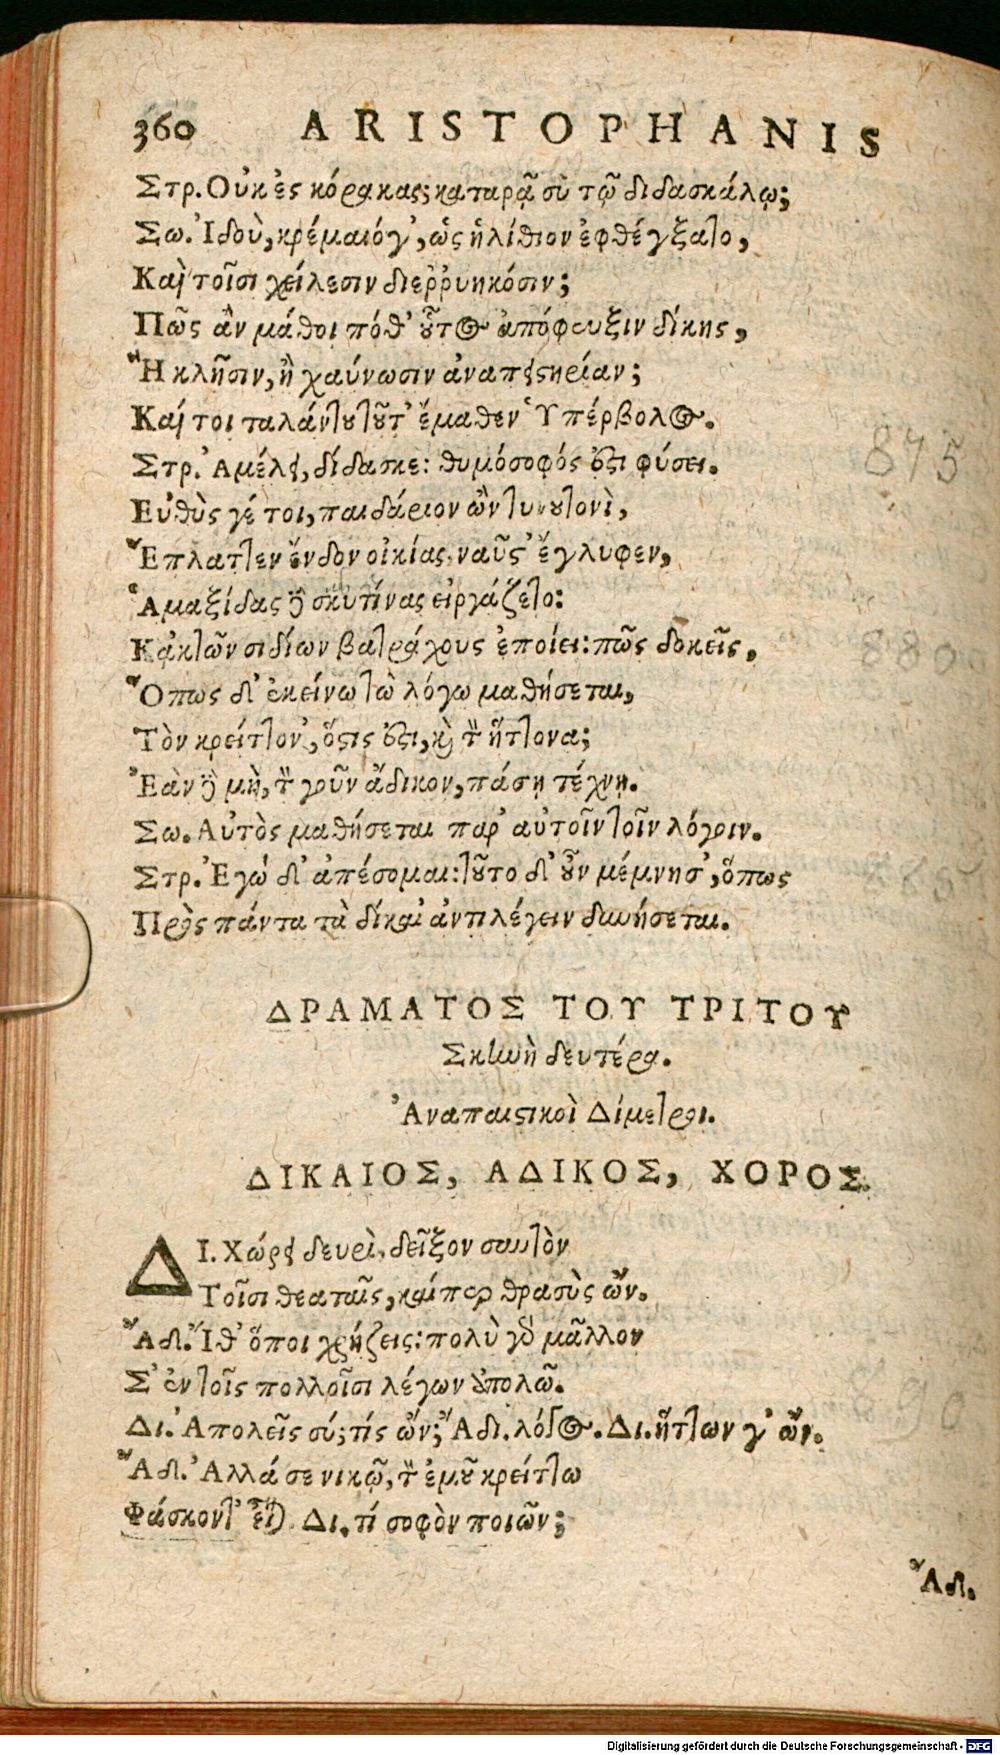 360 ARISTOPHANIS
Στρ. Οὐκ ἐς κόρακας; καταρᾷ σὺ τῷ διδασκάλῳ;
Σω. Ἰδοὺ, κρέμαιό γ', ὡς ἠλίθιον ἐφθέγξατο,
Καὶ τοῖσι χείλεσιν διεῤῥυηκόσιν;
Πῶς ἂν μάθοι πόθ' οὗτος ἀπόφευξιν δίκης,
Ἢ κλῆσιν, ἢ χαύνωσιν ἀναπειστηρίαν;
Καί τοι ταλάντου τοῦτ' ἔμαθεν Ὑπέρβολος.
Στρ. Ἀμέλει, δίδασκε: θυμόσοφός ἐστι φύσει.
Εὐθὺς γέ τοι, παιδάριον ὢν τυννουτονὶ,
Ἔπλαττεν ἔνδον οἰκίας, ναῦς τ' ἔγλυφεν,
Ἁμαξίδας δὲ σκυτίνας εἰργάζετο:
Κἀκ τῶν σιδίων βατράχους ἐποίει: πῶς δοκεῖς,
Ὅπως δ' ἐκείνω τὼ λόγω μαθήσεται,
Τὸν κρείττον', ὅστις ἐστι, καὶ τὸν ἥττονα;
Ἐὰν δὲ μὴ, τὸν γοῦν ἄδικον, πάσῃ τέχνῃ.
Σω. Αὐτὸς μαθήσεται παρ' αὐτοῖν τοῖν λόγοιν.
Στρ. Ἐγὼ δ' ἀπέσομαι: τοῦτο δ' οὖν μέμνησ', ὅπως
Πρὸς πάντα τὰ δίκαι' ἀντιλέγειν δυνήσεται.
ΔΡΑΜΑΤΟΣ ΤΟΥ ΤΡΙΤΟΥ
Σκηνὴ δευτέρα.
Ἀναπαιστικοὶ Δίμετροι.
ΔΙΚΑΙΟΣ, ΑΔΙΚΟΣ, ΧΟΡΟΣ.
ΔΙ. Χώρει δευρὶ, δεῖξον σαυτὸν
Τοῖσι θεαταῖς, καίπερ θρασὺς ὤν.
Ἄδ. Ἴθ' ὅποι χρῄζεις: πολὺ γὰρ μᾶλλον
Σ' ἐν τοῖς πολλοῖσι λέγων ἀπολῶ.
Δι. Ἀπολεῖς σύ; τίς ὤν; Ἄδι. λόγος. Δι. ἥττων γ' ὤν.
Ἄδ. Ἀλλά σε νικῶ, τὸν ἐμοῦ κρείττω
Φάσκοντ' εἶναι. Δι. τί σοφὸν ποιῶν;
Ἄδ.
875
880
885
890
Digitalisierung gefördert durch die Deutsche Forschungsgemeinschaft - DFG